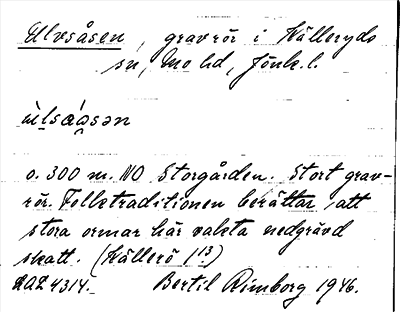 Ulvsåsen, gravrör i Källeryds
sn, Mo hd, Jönk. l.
ùlsæ̀ₐsən
o. 300 m. NO Storgården. Stort grav-
rör. Folktraditionen berättar, att
stora ormar här vakta nedgrävd
skatt. (Källerö 1¹³)
LAL 4314. Bertil Rimborg 1946.